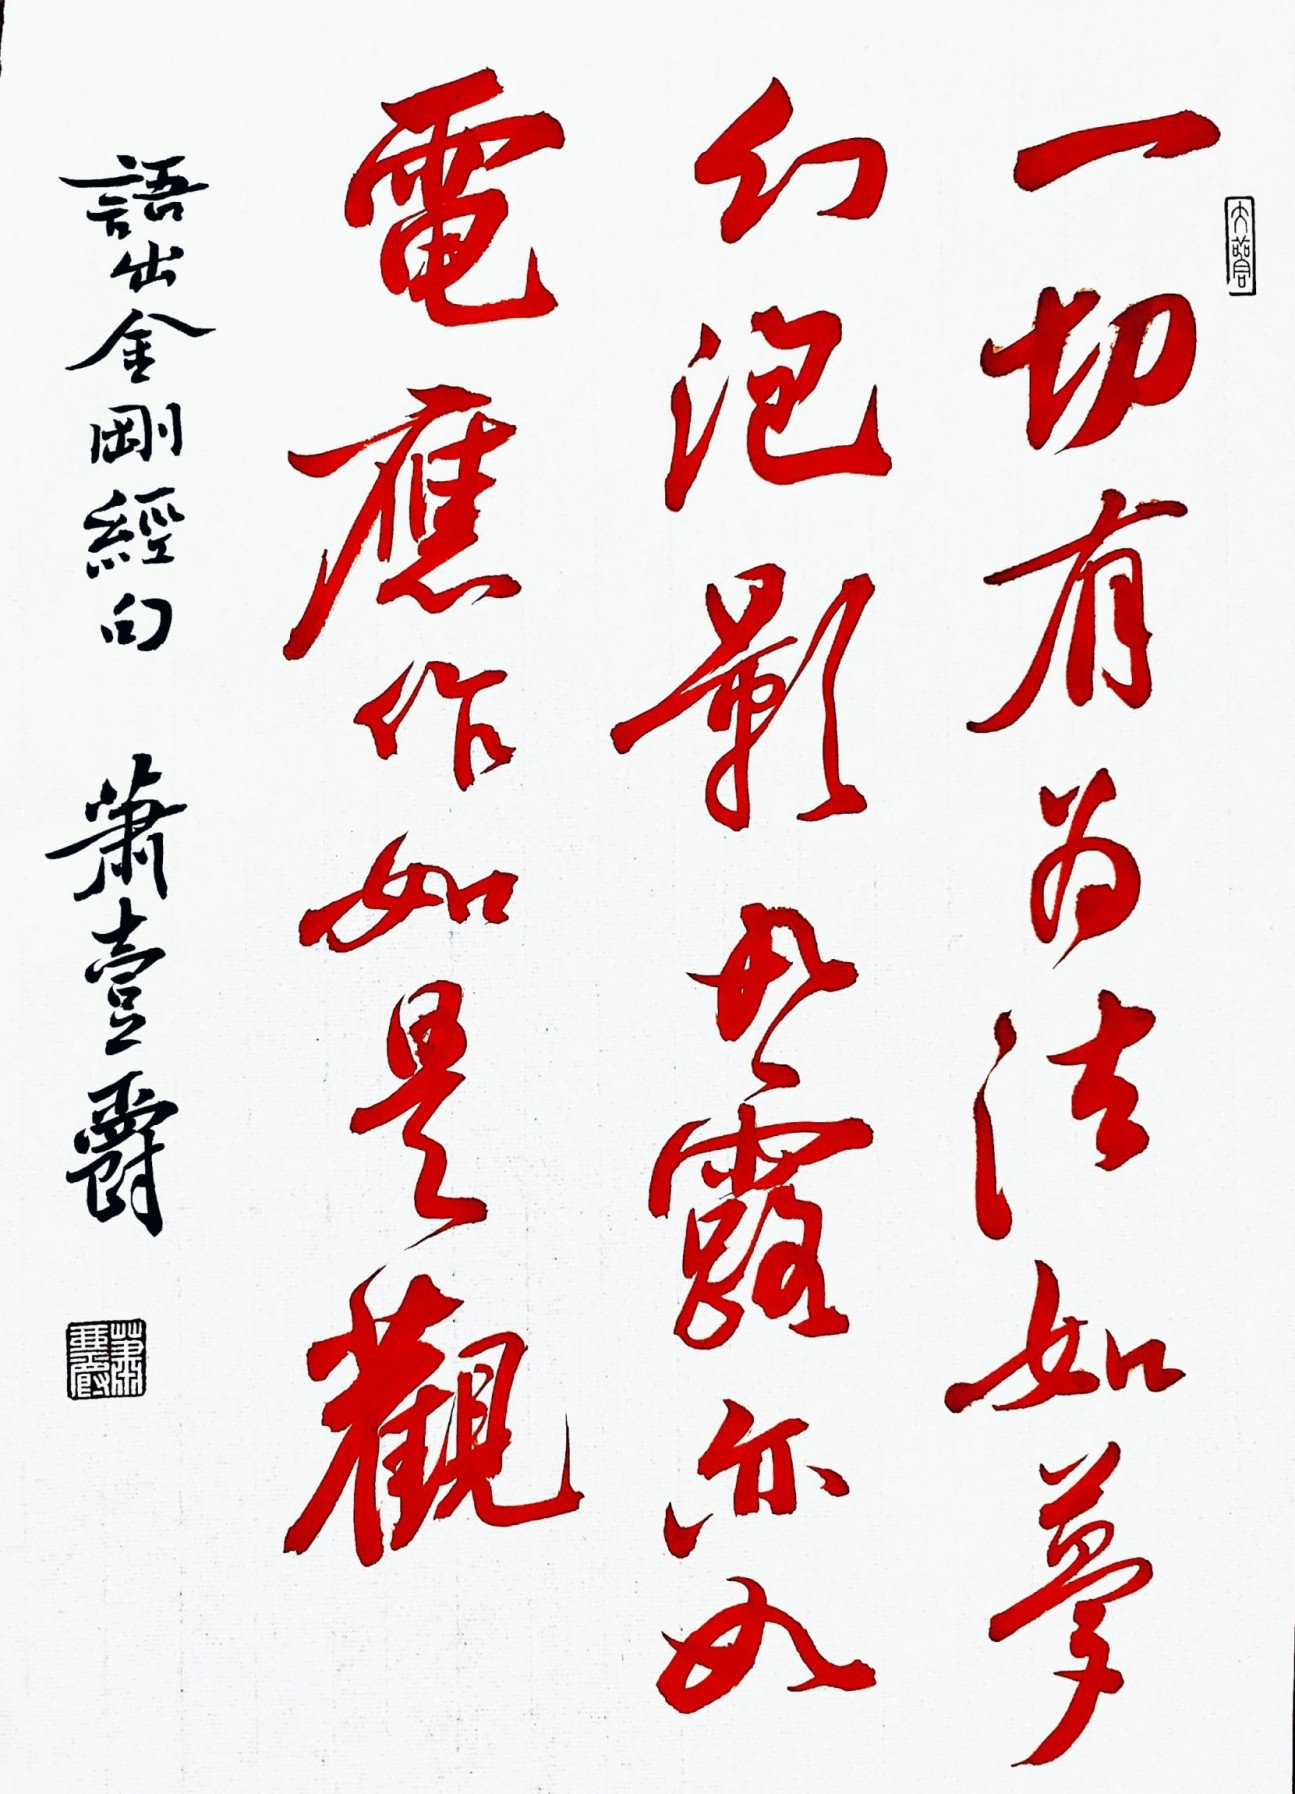 一切有為法如夢
幻泡影如露亦如
電應作如是觀
語出金剛經句 蕭壹爵